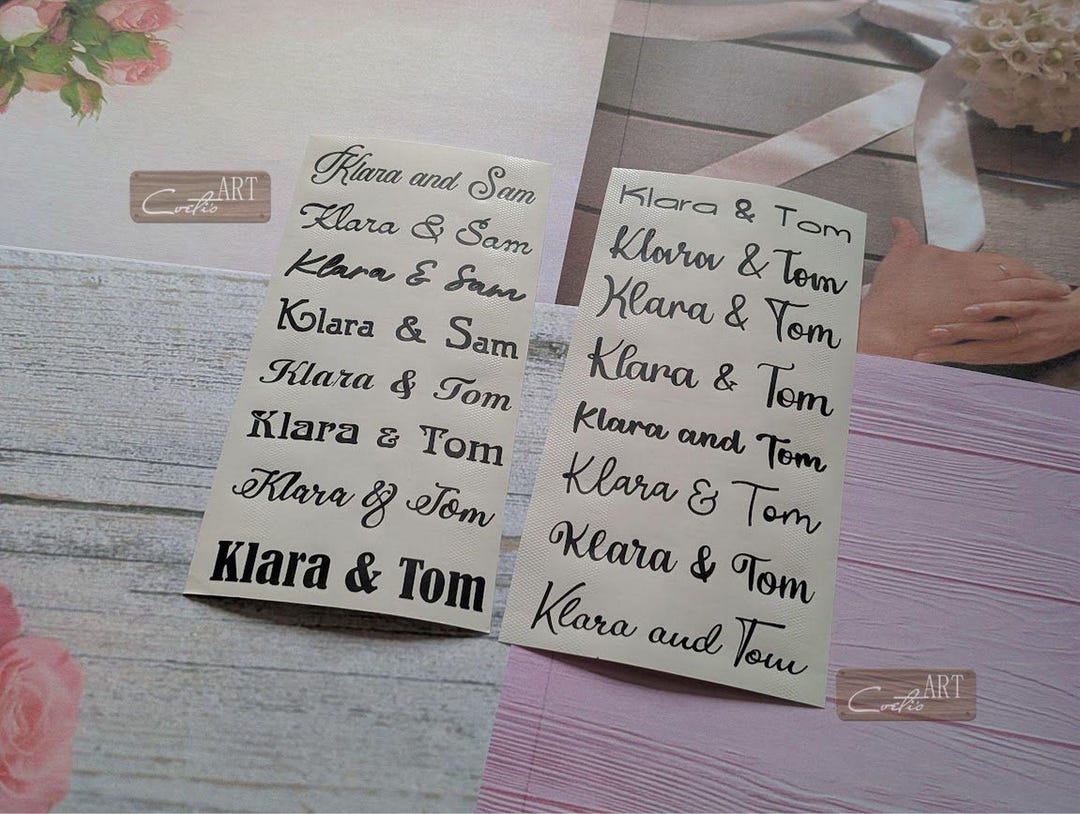 Klara and Sam
Klara & Sam
Klara & Sam
Klara & Sam
Klara & Tom
Klara & Tom
Klara & Tom
Klara & Tom
Klara & Tom
Klara & Tom
Klara & Tom
Klara & Tom
Klara and Tom
Klara & Tom
Klara & Tom
Klara and Tom
Coelis ART
Coelis ART